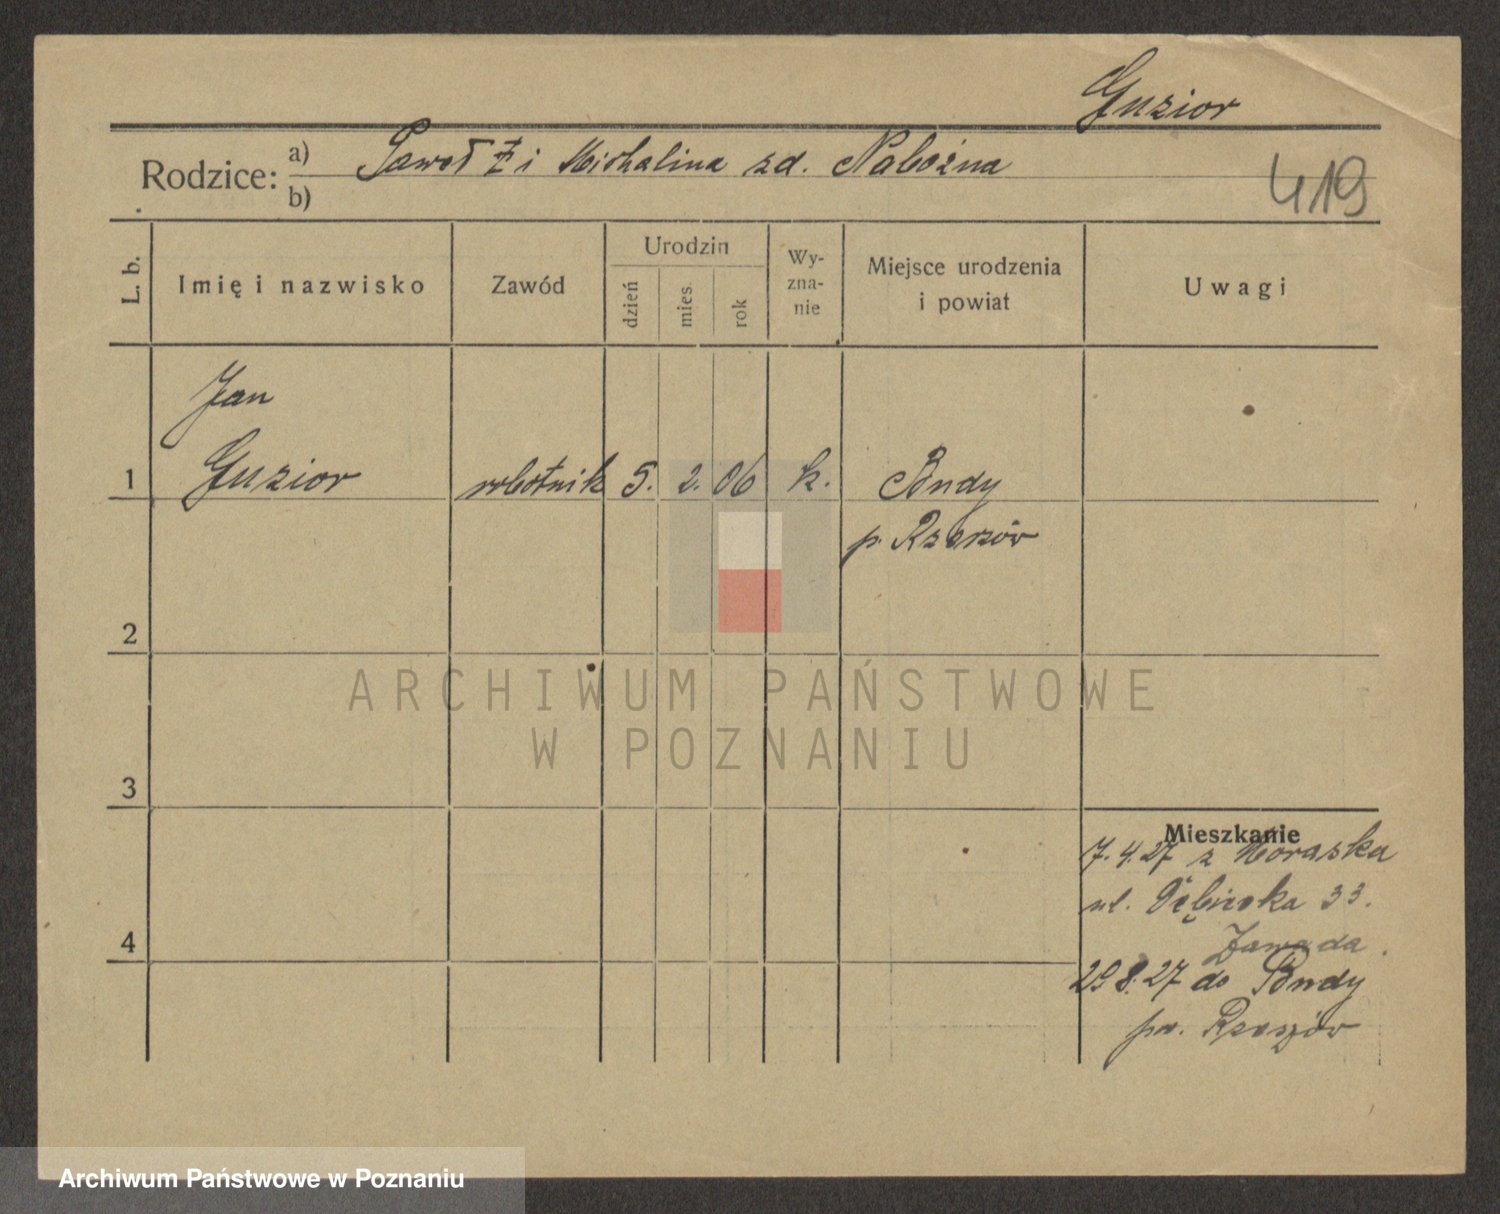 Guzior
Rodzice: a) Paweł i Michalina zd. Nabożna
b)
419
L. b.
Imię i nazwisko
Zawód
Urodzin
dzień
mies.
rok
Wy-
zna-
nie
Miejsce urodzenia
i powiat
Uwagi
Jan
1 Guzior robotnik 5. 2. 06 k. Bndy
p. Rzeszów
2
ARCHIWUM PAŃSTWOWE
W POZNANIU
3
Mieszkanie
7.4.27 z Moraska
ul. Dębieńka 33.
4 Zawada
29.8.27 do Bndy
pw. Rzeszów
Archiwum Państwowe w Poznaniu